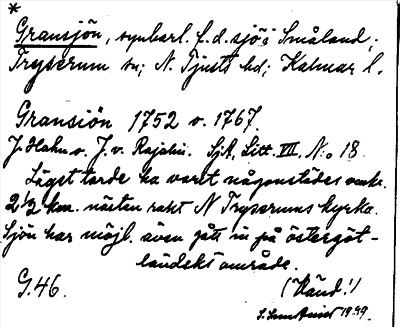 *
Gransjön, synbarl. f. d. sjö i Småland;
Tryserum sn; N. Tjusts hd; Kalmar l.
Gransiön 1752 v. 1767.
J. Hahn o. J. v. Rajalin. SjA, Litt. VII, No 18.
Läget torde ha varit någonstädes omkr.
2 1/2 km. nästan rakt N Tryserums kyrka.
Sjön har möjl. även gått in på östergöt-
ländskt område.
G. 46. (Vänd!)
1949.